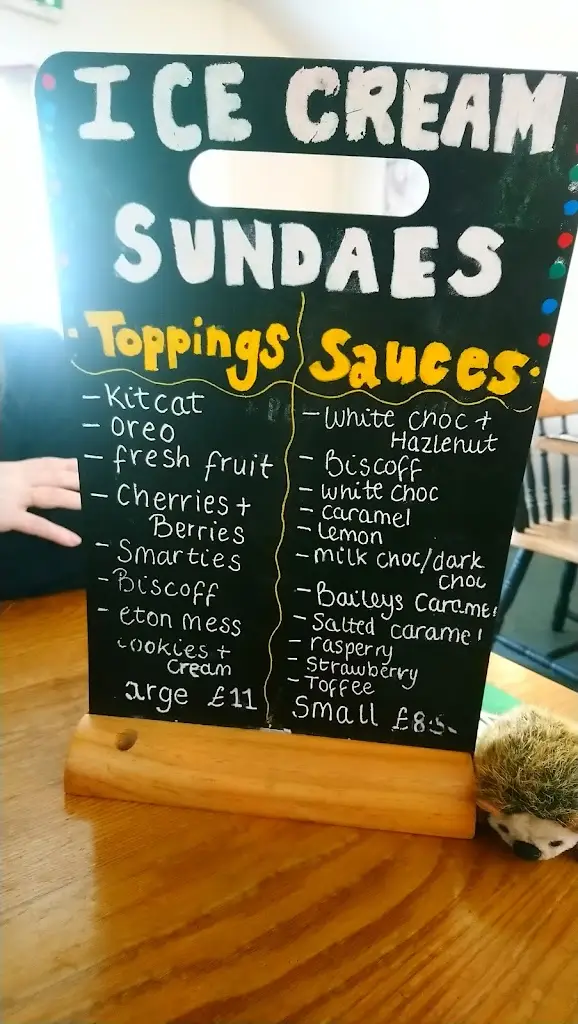 ICE CREAM
SUNDAES
Toppings
- Kitcat
- oreo
- fresh fruit
- Cherries +
Berries
- Smarties
- Biscoff
- eton mess
cookies +
cream
arge £11
Sauces
- White choc +
Hazlenut
- Biscoff
- white choc
- caramel
- lemon
- milk choc/dark
choc
- Baileys Caramel
- Salted caramel
- rasperry
- Strawberry
- Toffee
Small